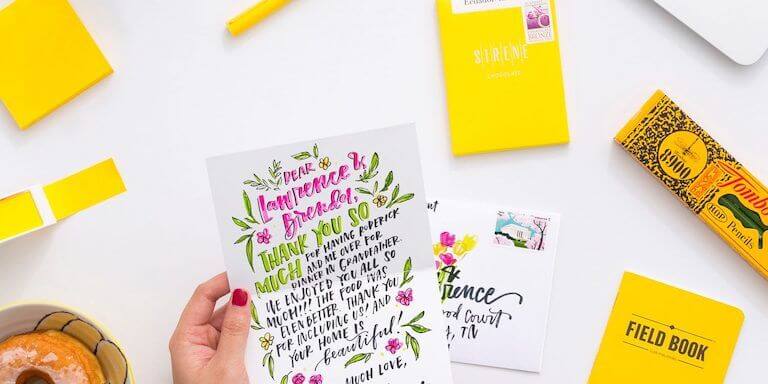 Ecuador
SIRENE
CHOCOLATE
BRONZE
8900
Tombow
HOP Pencils
FIELD BOOK
DEAR
Lawrence &
Brenda,
THANK YOU SO
MUCH
FOR HAVING RODERICK
AND ME OVER FOR
DINNER IN GRANDFATHER.
WE ENJOYED YOU ALL SO
MUCH!!! THE FOOD WAS
EVEN BETTER. THANK YOU
FOR INCLUDING US! AND
YOUR HOME IS
beautiful!
MUCH LOVE,
&
rence
od Court
, TN